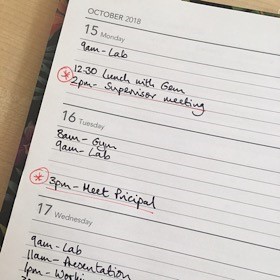 OCTOBER 2018
15 Monday
9am- Lab
12.30 Lunch with Gem
2pm- Supervisor meeting
16 Tuesday
8am- Gym
9am- Lab
3pm- Meet Pricipal
17 Wednesday
9am- Lab
11am- Presentation